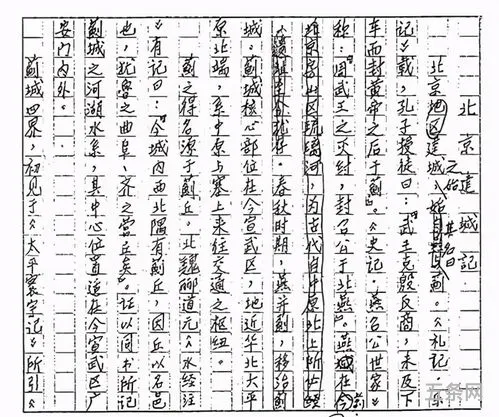 北京建城记
北京地区建城之始,其名曰蓟。《礼记·乐
记》载,孔子授徒曰:"武王克殷反商,未及下
车而封黄帝之后于蓟"。《史记·燕召公世家》
称:"周武王之灭纣,封召公于北燕"。燕城在今
京房山区琉璃河,为古代自中原北上所必经
春秋时期,燕并蓟,移治蓟
城。蓟城核心部位在今宣武区,地近华北大平
原北端,系中原与塞上来往交通之枢纽。
蓟之得名源于蓟丘,北魏郦道元《水经注
》有记曰:"今城内西北隅有蓟丘,因丘以名邑
也,犹鲁之曲阜、齐之营丘矣"。证以同书所记
蓟城之河湖水系,其中心位置适在今宣武区广
安门内外。
蓟城四界,初见于《太平寰宇记》所引《